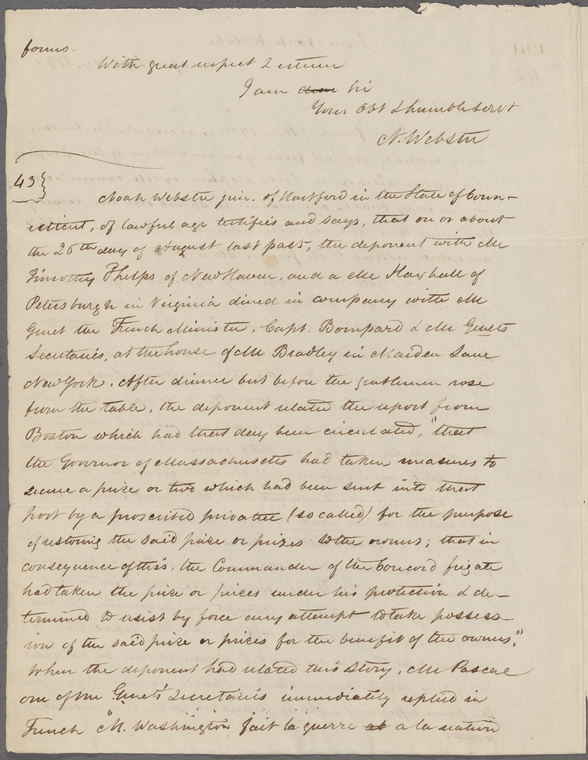 forms.
With great respect & esteem
I am Sir
Your Obt & humble Servt
N. Webster
43}
Noah Webster jun. of Hartford in the State of Conn-
ecticut, of lawful age testifies and says, that on or about
the 26th day of August last past, the deponent with Mr
Timothy Phelps of New Haven, and a Mr Haxhall of
Petersburgh in Virginia dined in company with Mr
Genet the French Minister, Capt. Bompard & Mr Genets
Secretaries, at the house of Mr Bradley in Maiden Lane
New York. After dinner but before the gentlemen rose
from the table, the deponent related the report from
Boston which had that day been circulated, "that
the Governor of Massachusetts had taken measures to
secure a prize or two which had been sent into that
port by a proscribed privateer (so called) for the purpose
of restoring the said prize or prizes to the owners; that in
consequence of this, the Commander of the Concord frigate
had taken the prize or prizes under his protection & de-
termined to resist by force any attempt to take possess-
ion of the said prize or prizes for the benefit of the owners."
When the deponent had related this story, Mr Pascal
one of Mr Genet's Secretaries immediately replied in
French "M. Washington fait la guerre a la nation